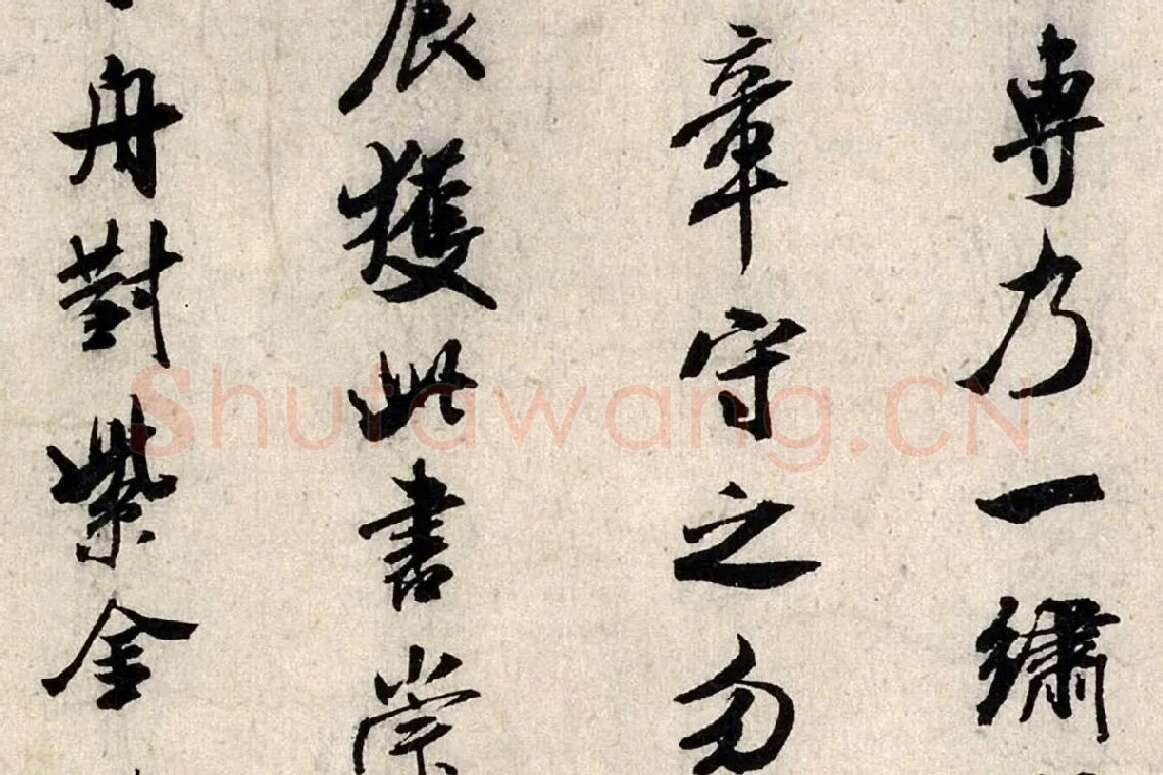 專乃一繡
章守之勿
獲此書
舟對紫金
Shufawang.CN